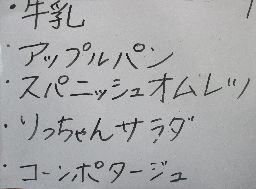 ・牛乳
・アップルパン
・スパニッシュオムレツ
・りっちゃんサラダ
・コーンポタージュ